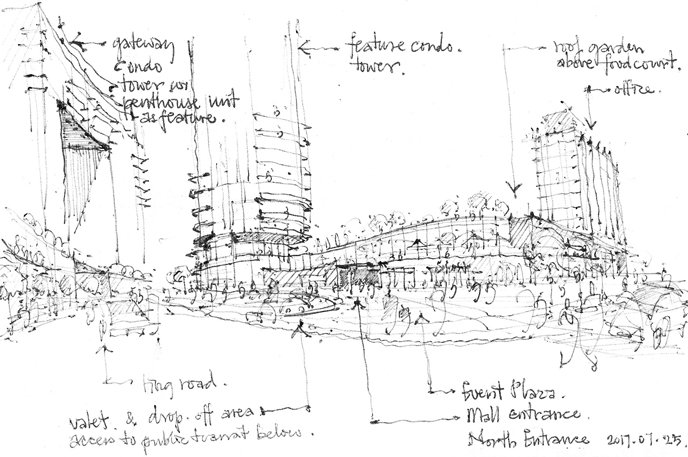 gateway
condo
tower w/
penthouse unit
as feature.
feature condo.
tower.
roof garden
above foodcourt.
office.
ring road.
valet & drop-off area
access to public transit below.
Event Plaza.
Mall entrance.
North Entrance 2017.07.25.